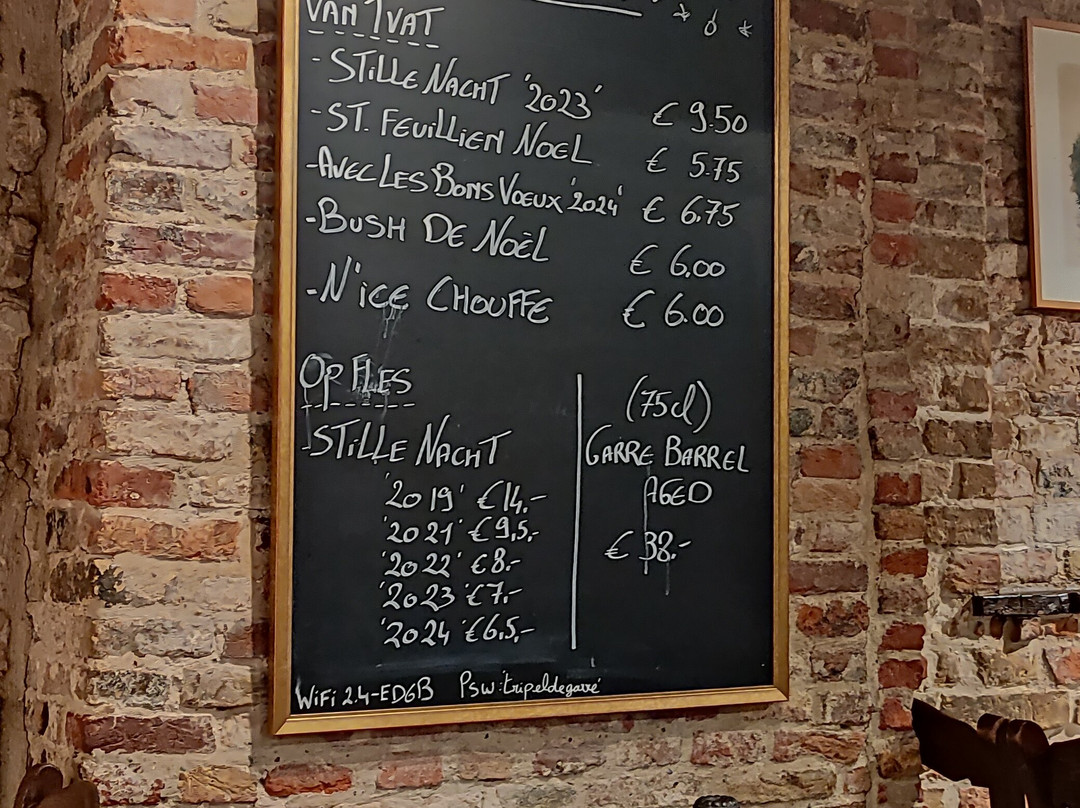 VAN 'T VAT
- STILLE NACHT '2023' € 9.50
- ST. FEUILLIEN NOEL € 5.75
- AVEC LES BONS VOEUX '2024' € 6.75
- BUSH DE NOËL € 6.00
- N'ICE CHOUFFE € 6.00
OP FLES
- STILLE NACHT
'2019' € 14.-
'2021' € 9,5.-
'2022' € 8.-
'2023' € 7.-
'2024' € 6,5.-
(75cl)
GARRE BARREL
AGED
€ 38.-
WiFi 2.4-ED6B Psw: tripeldegarre